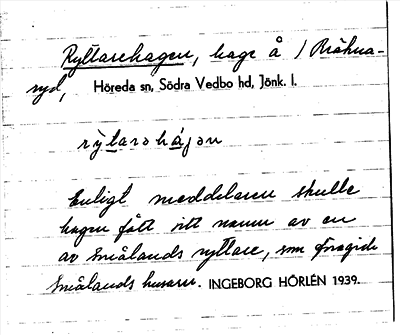 Ryttarehagen, hage å / Bråkna-
ryd, Höreda sn, Södra Vedbo hd, Jönk. l.
rỳtarəhágən
Enligt meddelaren skulle
hagen fått sitt namn av en
av Smålands ryttare, som föregick
Smålands husarer. INGEBORG HÖRLÉN 1939.